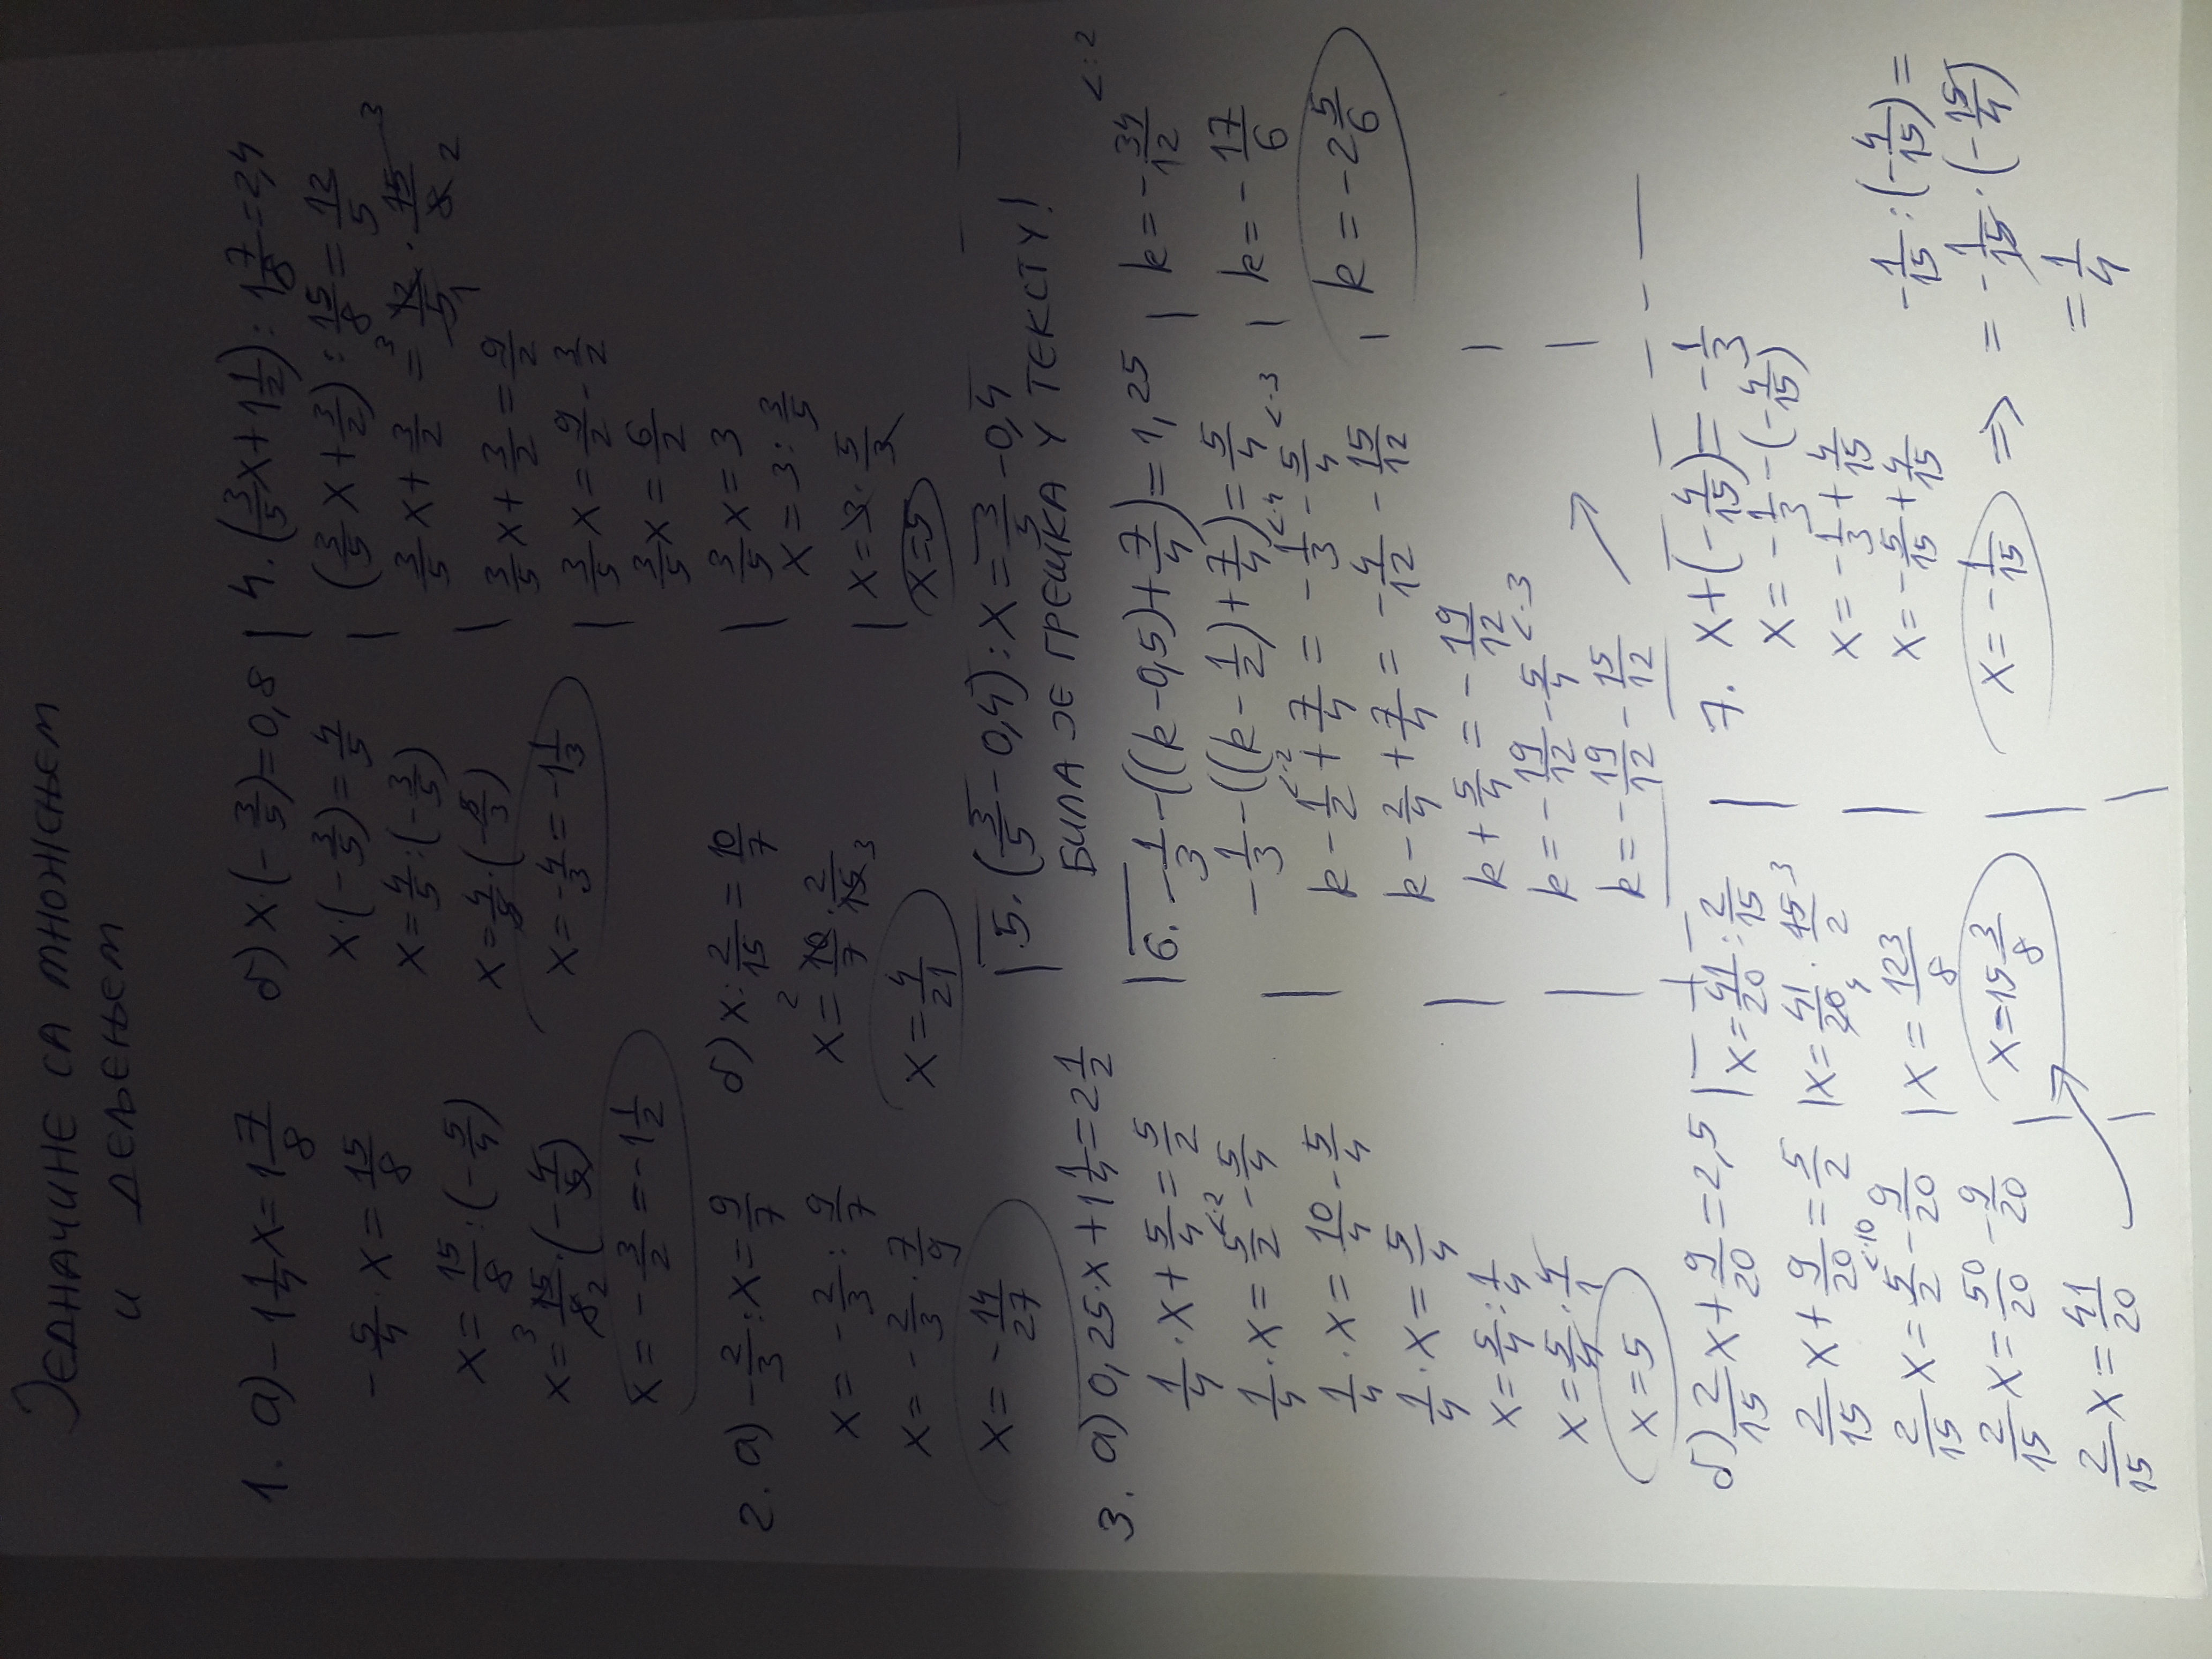 ЈЕДНАЧИНЕ СА МНОЖЕЊЕМ
И ДЕЉЕЊЕМ
1. а) -1 1/4 x = 1 7/8
-5/4 · x = 15/8
x = 15/8 : (-5/4)
x = 15/8 · (-4/5) 3 2
x = -3/2 = -1 1/2
б) x · (-3/5) = 0,8
x · (-3/5) = 4/5
x = 4/5 : (-3/5)
x = 4/5 · (-5/3)
x = -4/3 = -1 1/3
2. а) -2/3 : x = 9/7
x = -2/3 : 9/7
x = -2/3 · 7/9
x = -14/27
б) x : 2/15 = 10/7
x = 10/7 · 2/15 2 3
x = 4/21
3. а) 0,25 · x + 1 1/4 = 2 1/2
1/4 · x + 5/4 = 5/2
1/4 · x = 5/2 <·2 - 5/4
1/4 · x = 10/4 - 5/4
1/4 · x = 5/4
x = 5/4 : 1/4
x = 5/4 · 4/1
x = 5
б) 2/15 x + 9/20 = 2,5
2/15 x + 9/20 = 5/2
2/15 x = 5/2 <·10 - 9/20
2/15 x = 50/20 - 9/20
2/15 x = 41/20
x = 41/20 : 2/15
x = 41/20 · 15/2 4 3
x = 123/8
x = 15 3/8
4. (3/5 x + 1 1/2) : 1 7/8 = 2,4
(3/5 x + 3/2) : 15/8 = 12/5
3/5 x + 3/2 = 12/5 · 15/8 3 1 3 2
3/5 x + 3/2 = 9/2
3/5 x = 9/2 - 3/2
3/5 x = 6/2
3/5 x = 3
x = 3 : 3/5
x = 3 · 5/3
x = 5
5. (3/5 - 0,4) : x = 3/5 - 0,4
БИЛА ЈЕ ГРЕШКА У ТЕКСТУ!
6. -1/3 - ((k - 0,5) + 7/4) = 1,25
-1/3 - ((k - 1/2) + 7/4) = 5/4
k - 1/2 <·2 + 7/4 = -1/3 <·4 - 5/4 <·3
k - 2/4 + 7/4 = -4/12 - 15/12
k + 5/4 = -19/12
k = -19/12 - 5/4 <·3
k = -19/12 - 15/12
k = -34/12 <:2
k = -17/6
k = -2 5/6
7. x + (-4/15) = -1/3
x = -1/3 - (-4/15)
x = -1/3 + 4/15
x = -5/15 + 4/15
x = -1/15 ⇒
-1/15 : (-4/15) =
= -1/15 · (-15/4)
= 1/4